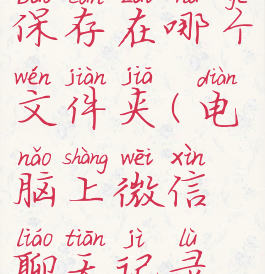 bǎo cún zài nǎ gè
保存在哪个
wén jiàn jiā diàn
文件夹(电
nǎo shàng wēi xìn
脑上微信
liáo tiān jì lù
聊天记录